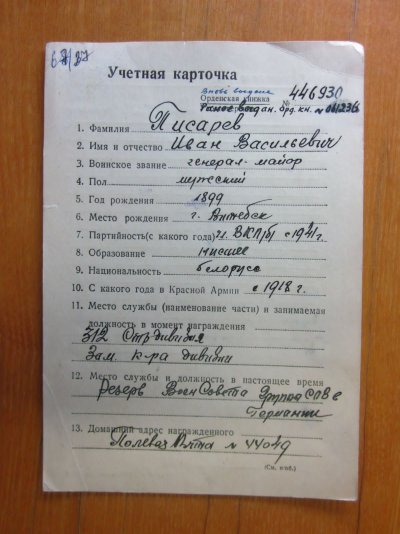 Учетная карточка
Вновь выдана
Орденская книжка № 446930
Ранее выдан. орд. кн. №
1. Фамилия Писарев
2. Имя и отчество Иван Васильевич
3. Воинское звание генерал-майор
4. Пол мужский
5. Год рождения 1899
6. Место рождения г. Витебск
7. Партийность (с какого года) чл. ВКП/б/ с 1941 г.
8. Образование низшее
9. Национальность белорус
10. С какого года в Красной Армии с 1918 г.
11. Место службы (наименование части) и занимаемая
должность в момент награждения
312 Стр. дивизия
Зам. к-ра дивизии
12. Место службы и должность в настоящее время
Резерв Воен Совета Группа СОВ в
Германии
13. Домашний адрес награжденного
Полевая Почта № 44049
(См. н/об.)